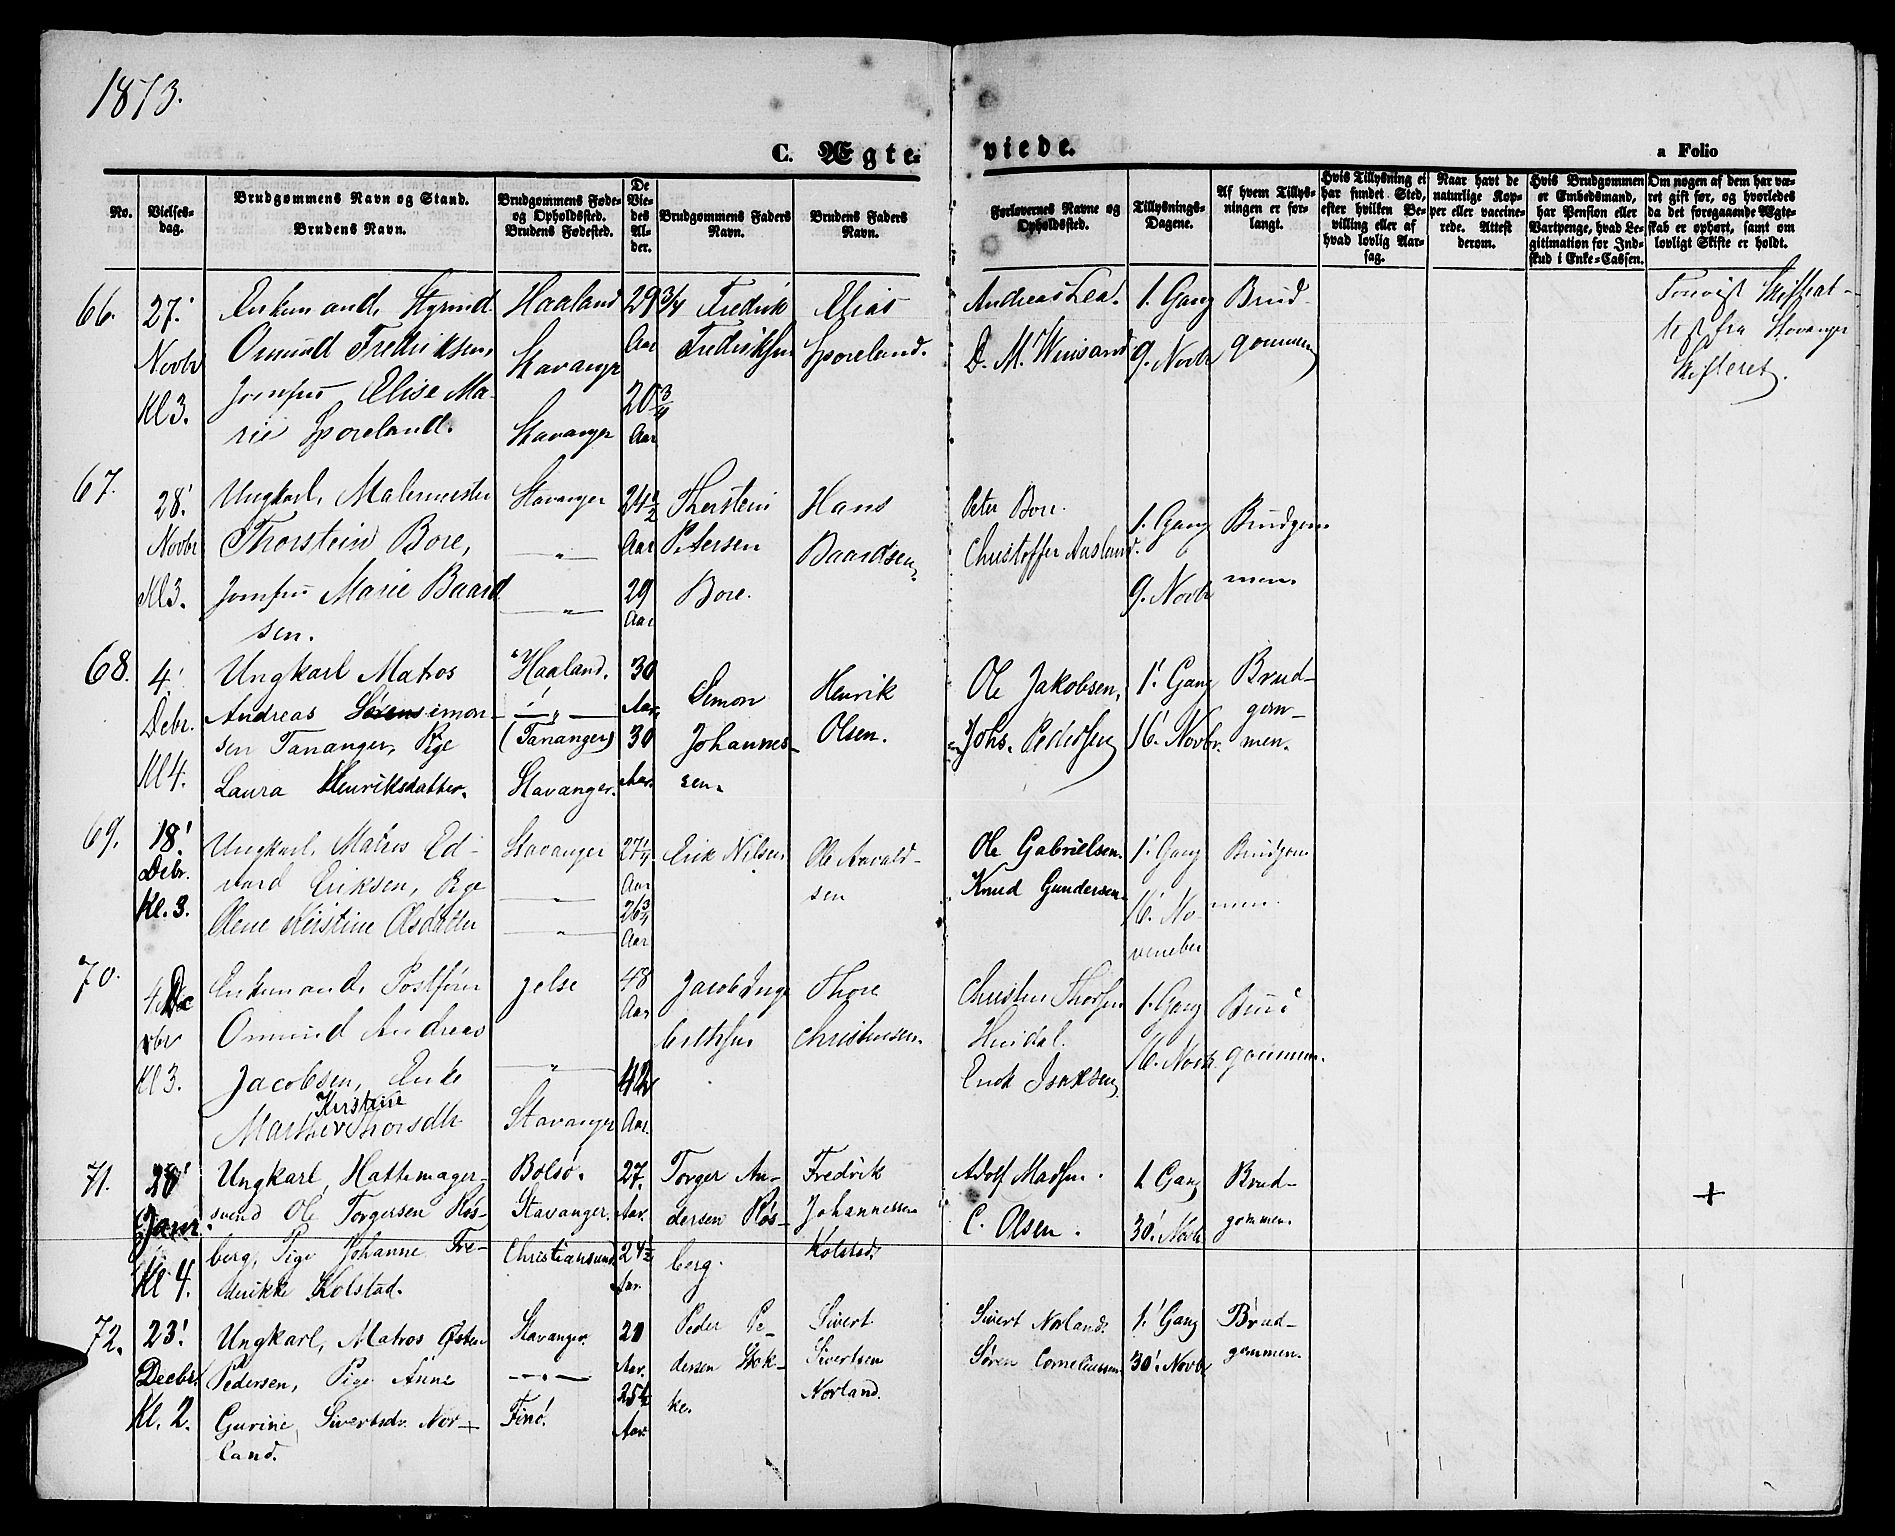 1873.
C. Ægte-
viede.
a Folio
No.
Vielses-
dag.
Brudgommens Navn og Stand.
Brudens Navn.
Brudgommens Føde-
og Opholdssted.
Brudens Fødested.
De
Vie-
des
Al-
der.
Brudgommens Faders
Navn.
Brudens Faders
Navn.
Forlovernes Navne og
Opholdssted.
Tillysnings-
Dagene.
Af hvem Tillys-
ningen er for-
langt.
Hvis Tillysning ei
har fundet Sted,
efter hvilken Be-
villing eller af
hvad lovlig Aar-
sag.
Naar havt de
naturlige Kop-
per eller vaccine-
rede. Attest
derom.
Hvis Brudgommen
er Embedsmand,
har Pension eller
Vartpenge, hvad Le-
gitimation for Ind-
skud i Enke-Cassen.
Om nogen af dem har væ-
ret gift før, og hvorledes
da det foregaaende Ægte-
skab er ophørt, samt om
lovligt Skifte er holdt.
66.
27!
Novbr
Kl 3.
Enkemand,
Omund Fredriksen,
Jomfru Elise Ma-
rie Sporeland.
Haaland
Stavanger
Stavanger
29 3/4
Aar
20 3/4
Aar
Fredrik
Fredriksen
Elias
Sporeland.
Andreas Lea.
D. M.
1. Gang
9. Novbr
Brud-
gommen
Skifteat-
test fra Stavanger
Skifteret.
67.
28!
Novbr
Kl 3.
Ungkarl, Malermester
Thorstein Bore,
Jomfru Marie Baard
sen.
Stavanger
— " —
— " —
24 1/2
Aar
29
Aar
Thorstein
Petersen
Bore.
Hans
Baardsen,
Peter Bore.
Christoffer Aasland.
1. Gang
9. Novbr
Brudgom-
men.
68.
4!
Debr.
Kl 4.
Ungkarl Matros
Andreas Sørensimon-
sen Tananger, Pige
Laura Henriksdatter.
Haaland.
— " —
(Tananger)
Stavanger.
30
Aar.
30
Aar.
Simon
Johannes-
sen.
Henrik
Olsen.
Ole Jakobsen,
Johs. Pedersen
1! Gang
16! Novbr.
Brud-
gom-
men.
69.
18!
Debr.
Kl. 3.
Ungkarl, Matros Ed-
vard Eriksen, Pige
Olene Kirstine Olsdatter
Stavanger
— " —
— " —
27 1/4
Aar
26 3/4
Aar
Erik Nilsen
Ole Aavald-
sen
Ole Gabrielsen.
Knud Gundersen.
1! Gang
16! No-
vember
Brudgom
men.
70.
4 Dec
vbr
Kl 3.
Enkemand, Postfører
Omund Andreas
Jacobsen, Enke
Kirstine
Marthe Thorsdtr
Jelse
— " —
Stavanger
48
Aar
42
Aar.
Jacob Inge
brethsen
Thore
Christensen
Christen Thorsen
Hindal.
Erik Isaksen
1. Gang
16. Novbr
Brud
gommen.
71.
28!
Janr.
Kl 4.
Ungkarl, Hattemager-
svend Ole Torgersen Røs-
berg, Pige Johanne Fre-
derikke Kolstad.
Bolsø.
Stavanger.
Christiansund
27.
Aar.
24 1/2
Aar.
Torger An-
dersen Røs-
berg.
Fredrik
Johannessen
Kolstad.
Adolf Madsen.
C. Olsen.
1 Gang
30! Novbr
Brud-
gommen.
+
72.
23!
Decbr.
Kl. 2.
Ungkarl, Matros Østen
Pedersen, Pige Anne
Gurine Sivertsdr. Nor-
land.
Stavanger.
— " —
Finø.
20
Aar.
25 1/2
Aar.
Peder Pe-
dersen Stok-
ke.
Sivert
Sivertsen
Norland.
Sivert Norland.
Søren Corneliussen
1! Gang
30! Novbr
Brud-
gommen.